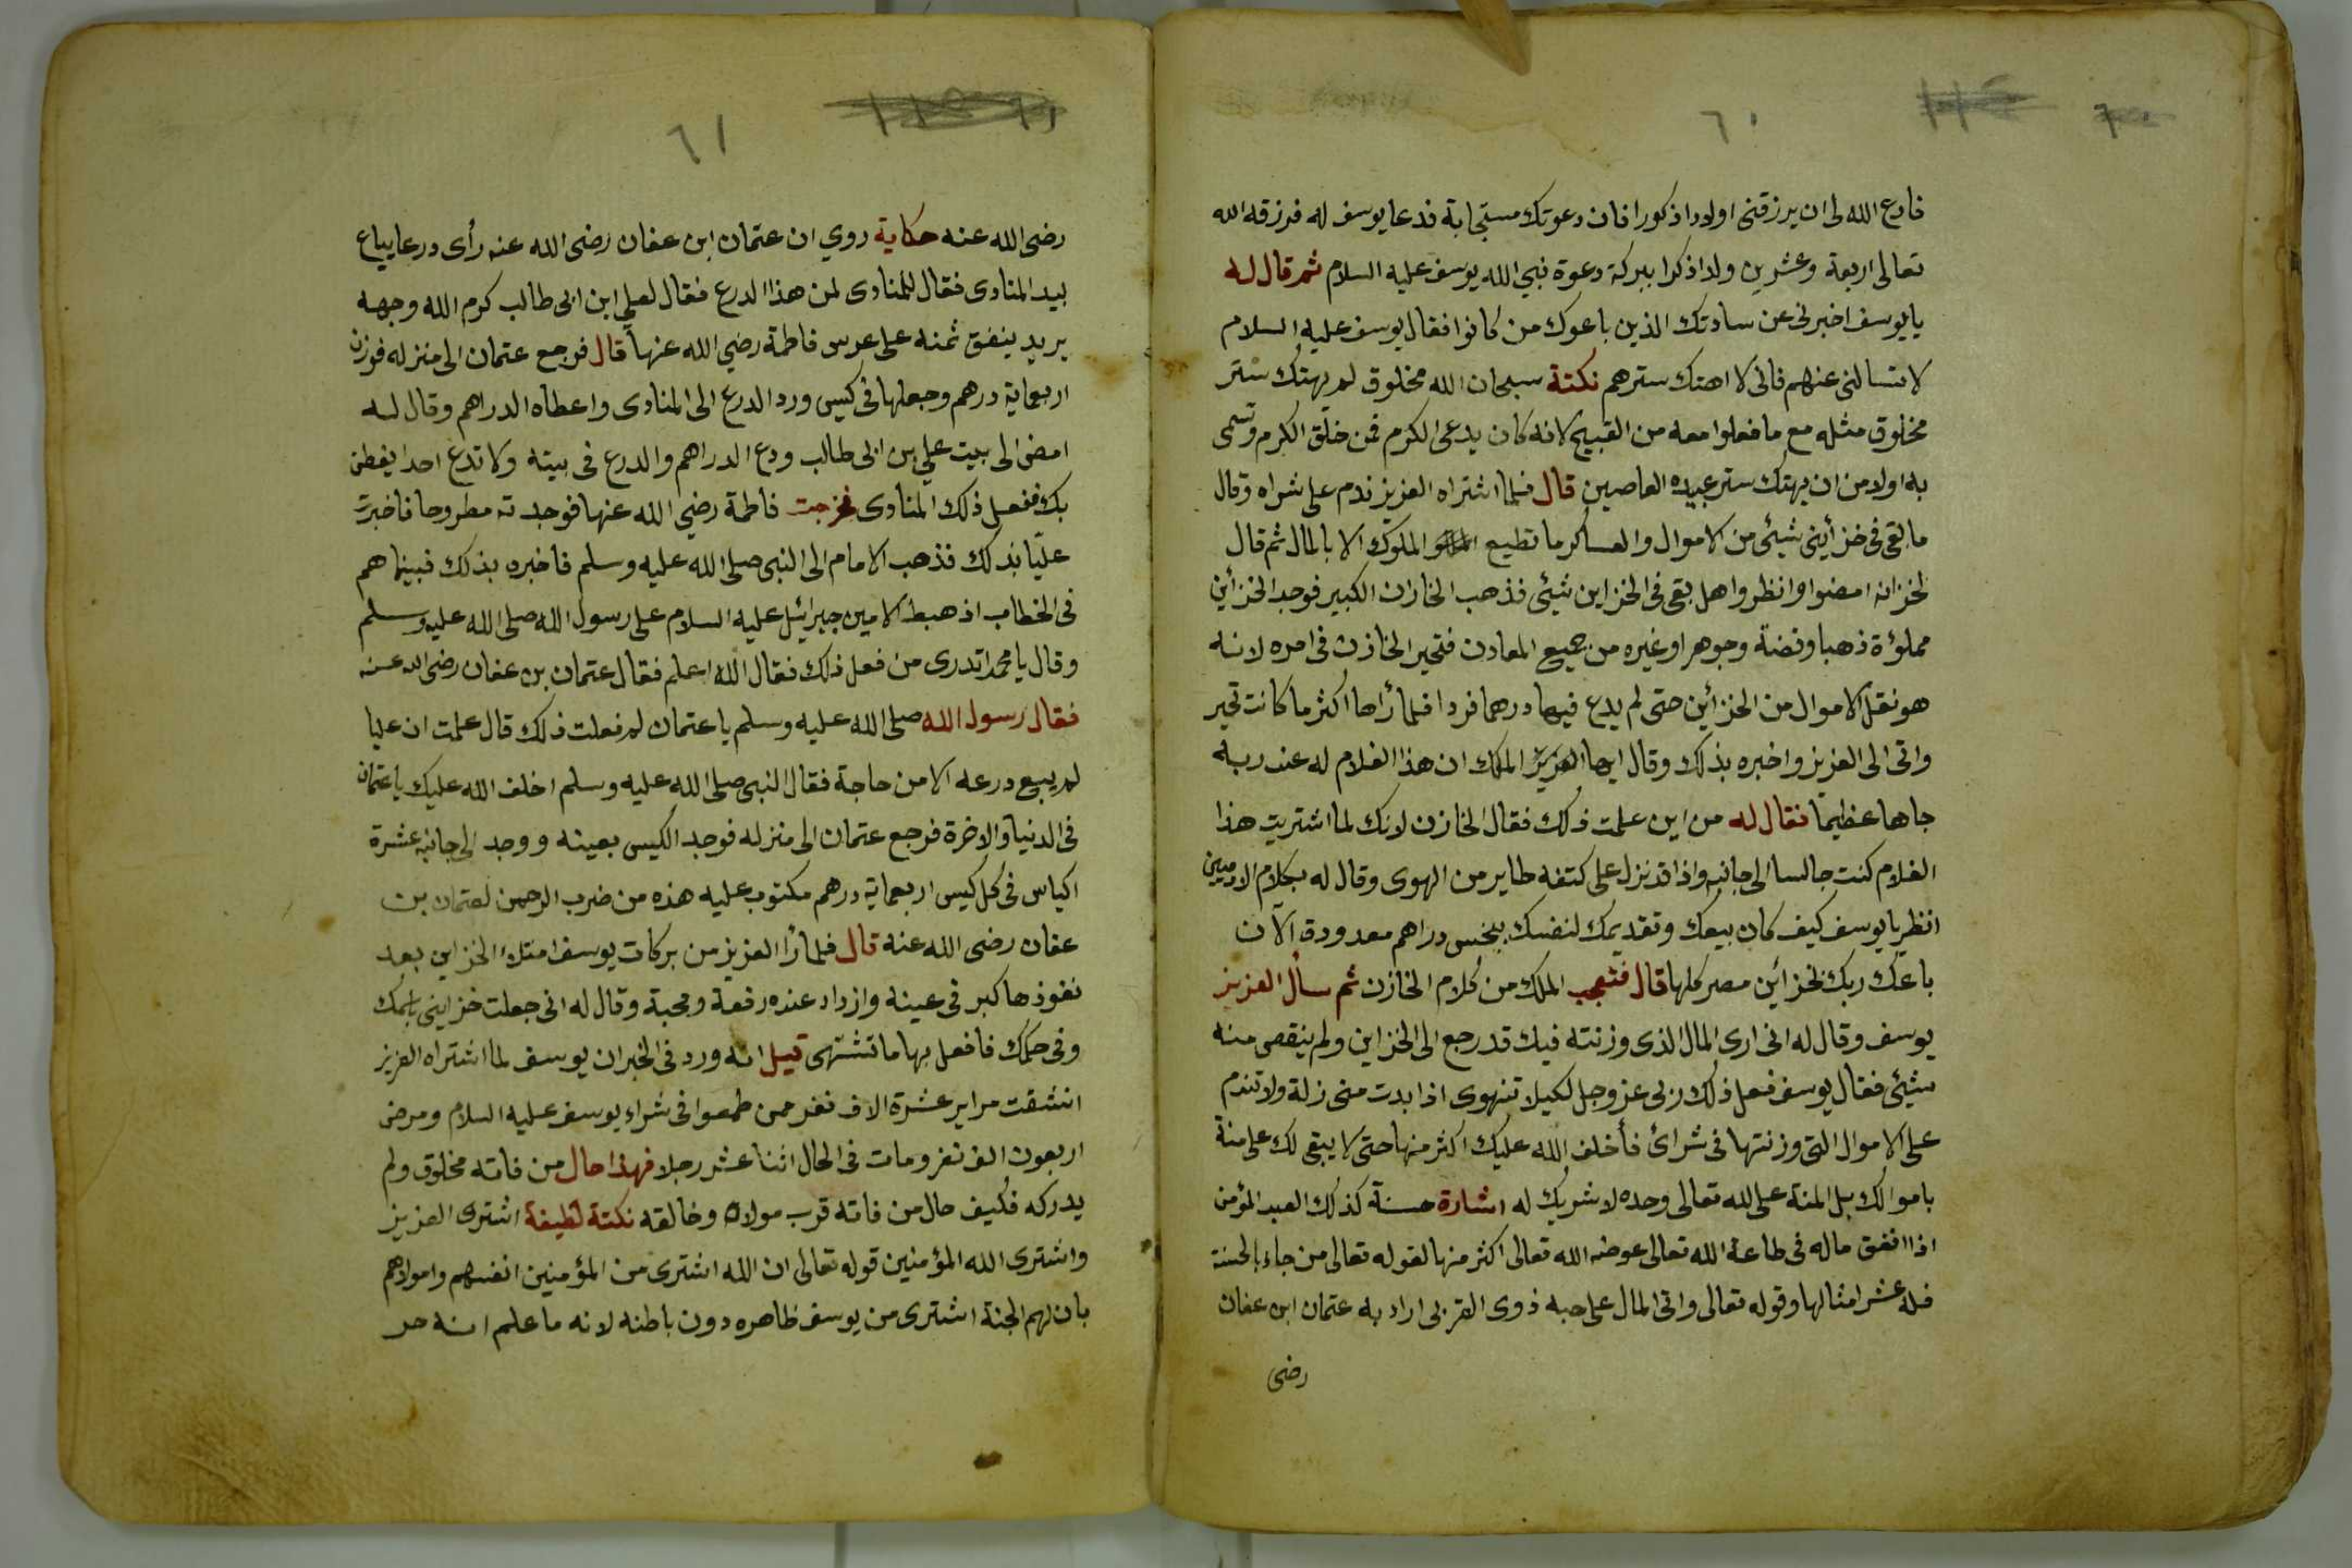 ٦٠
فادع الله لى ان يرزقنى اولادا ذكورا فان دعوتك مستجابة فدعا يوسف له فرزقه الله
تعالى اربعة وعشرين ولدا ذكرا ببركة دعوة نبي الله يوسف عليه السلام ثم قال له
يا يوسف اخبرنى عن سادتك الذين باعوك من كانوا فقال يوسف عليه السلام
لا تسالنى عنهم فانى لا اهتك سترهم نكتة سبحان الله مخلوق لم يهتك ستر
مخلوق مثله مع ما فعلوا معه من القبيح لانه كان يدعى الكرم فمن خلق الكرم وتسمى
به اولا من ان يهتك ستر عبيده العاصين قال فلما اشتراه العزيز ندم على شراه وقال
ما بقى فى خزأينى شيئى من الاموال والعساكر ما تطيع الملوك الا بالمال ثم قال
لخزانه امضوا وانظروا هل بقى فى الخزاين شيئى فذهب الخازن الكبير فوجد الخزأين
مملؤة ذهبا وفضة وجوهرا وغيره من جميع المعادن فتحير الخازن فى امره لانه
هو نقل الاموال من الخزأين حتى لم يدع فيها درهما فردا فلما رأاها اكثر ما كانت تحير
واتى الى العزيز واخبره بذلك وقال ايها العزيز الملك ان هذا الغلام له عند ربه
جاها عظيما فقال له من اين علمت ذلك فقال الخازن لانك لما اشتريت هذا
الغلام كنت جالسا الى جانبه واذا قد نزل على كتفه طاير من الهوى وقال له بكلام الادميين
انظر يا يوسف كيف كان بيعك وتقديمك لنفسك ببخس دراهم معدودة الآن
باعك ربك بخزأين مصر كلها قال فتعجب الملك من كلام الخازن ثم سأل العزيز
يوسف وقال له انى ارى المال الذى وزنته فيك قد رجع الى الخزاين ولم ينقص منه
شيئى فقال يوسف فعل ذلك ربى عز وجل لكيلا تنهوى اذا بدت منى زلة ولا تندم
على الاموال التى وزنتها فى شرائ فأخلف الله عليك اكثر منها حتى لا يبقى لك على منة
باموالك بل المنة على لله تعالى وحده لا شريك له اشارة حسنة كذلك العبد المؤمن
اذا انفق ماله فى طاعة الله تعالى عوضه الله تعالى اكثر منها لقوله تعالى من جاء بالحسنة
فله عشر امثالها وقوله تعالى واتى المال على حبه ذوى القربى اراد به عتمان ابن عفان
رضى
٦١
رضى الله عنه حكاية روي ان عتمان ابن عفان رضى الله عنه رأى درعا يباع
بيد المنادى فقال للمنادى لمن هذا الدرع فقال لعلى ابن ابى طالب كرم الله وجهه
يريد ينفق ثمنه على عرس فاطمة رضي الله عنها قال فرجع عتمان الى منزله فوزن
اربعماية درهم وجعلها فى كيس ورد الدرع الى المنادى واعطاه الدراهم وقال له
امضى الى بيت علي بن ابى طالب ودع الدراهم والدرع فى بيته ولا تدع احدا يفطن
بك ففعل ذلك المنادى فخرجت فاطمة رضي الله عنها فوجدته مطروحا فاخبرت
عليّا بذلك فذهب الامام الى النبى صلى الله عليه وسلم فاخبره بذلك فبينما هم
فى الخطاب اذ هبط الامين جبرائيل عليه السلام على رسول الله صلى الله عليه وسلم
وقال يا محمد اتدرى من فعل ذلك فقال الله اعلم فقال عتمان بن عفان رضى الله عنه
فقال رسول الله صلى الله عليه وسلم يا عتمان لم فعلت ذلك قال علمت ان عليا
لم يبيع درعه الا من حاجة فقال النبى صلى الله عليه وسلم اخلف الله عليك يا عتمان
فى الدنيا والاخرة فرجع عتمان الى منزله فوجد الكيس بعينه ووجد الى جانبه عشرة
اكياس فى كل كيس اربعماية درهم مكتوب عليه هذه من ضرب الرحمن لعتمان بن
عفان رضى الله عنه قال فلما رأا العزيز من بركات يوسف امتلاء الخزاين بعد
نفوذها كبر فى عينه وازداد عنده رفعة ومحبة وقال له انى جعلت خزاينى باسمك
وفى حكمك فافعل بها ما تشتهى قيل انه ورد فى الخبر ان يوسف لما اشتراه العزيز
انشقت مراير عشرة الاف نفر ممن طمعوا فى شراء يوسف عليه السلام ومرض
اربعون الف نفر ومات فى الحال اثنا عشر رجلا فهذا حال من فاته مخلوق ولم
يدركه فكيف حال من فاته قرب مولاه وخالقه نكتة لطيفة اشترى العزيز
واشترى الله المؤمنين قوله تعالى ان الله اشترى من المؤمنين انفسهم واموالهم
بان لهم الجنة اشترى من يوسف ظاهره دون باطنه لانه ما علم انه حر